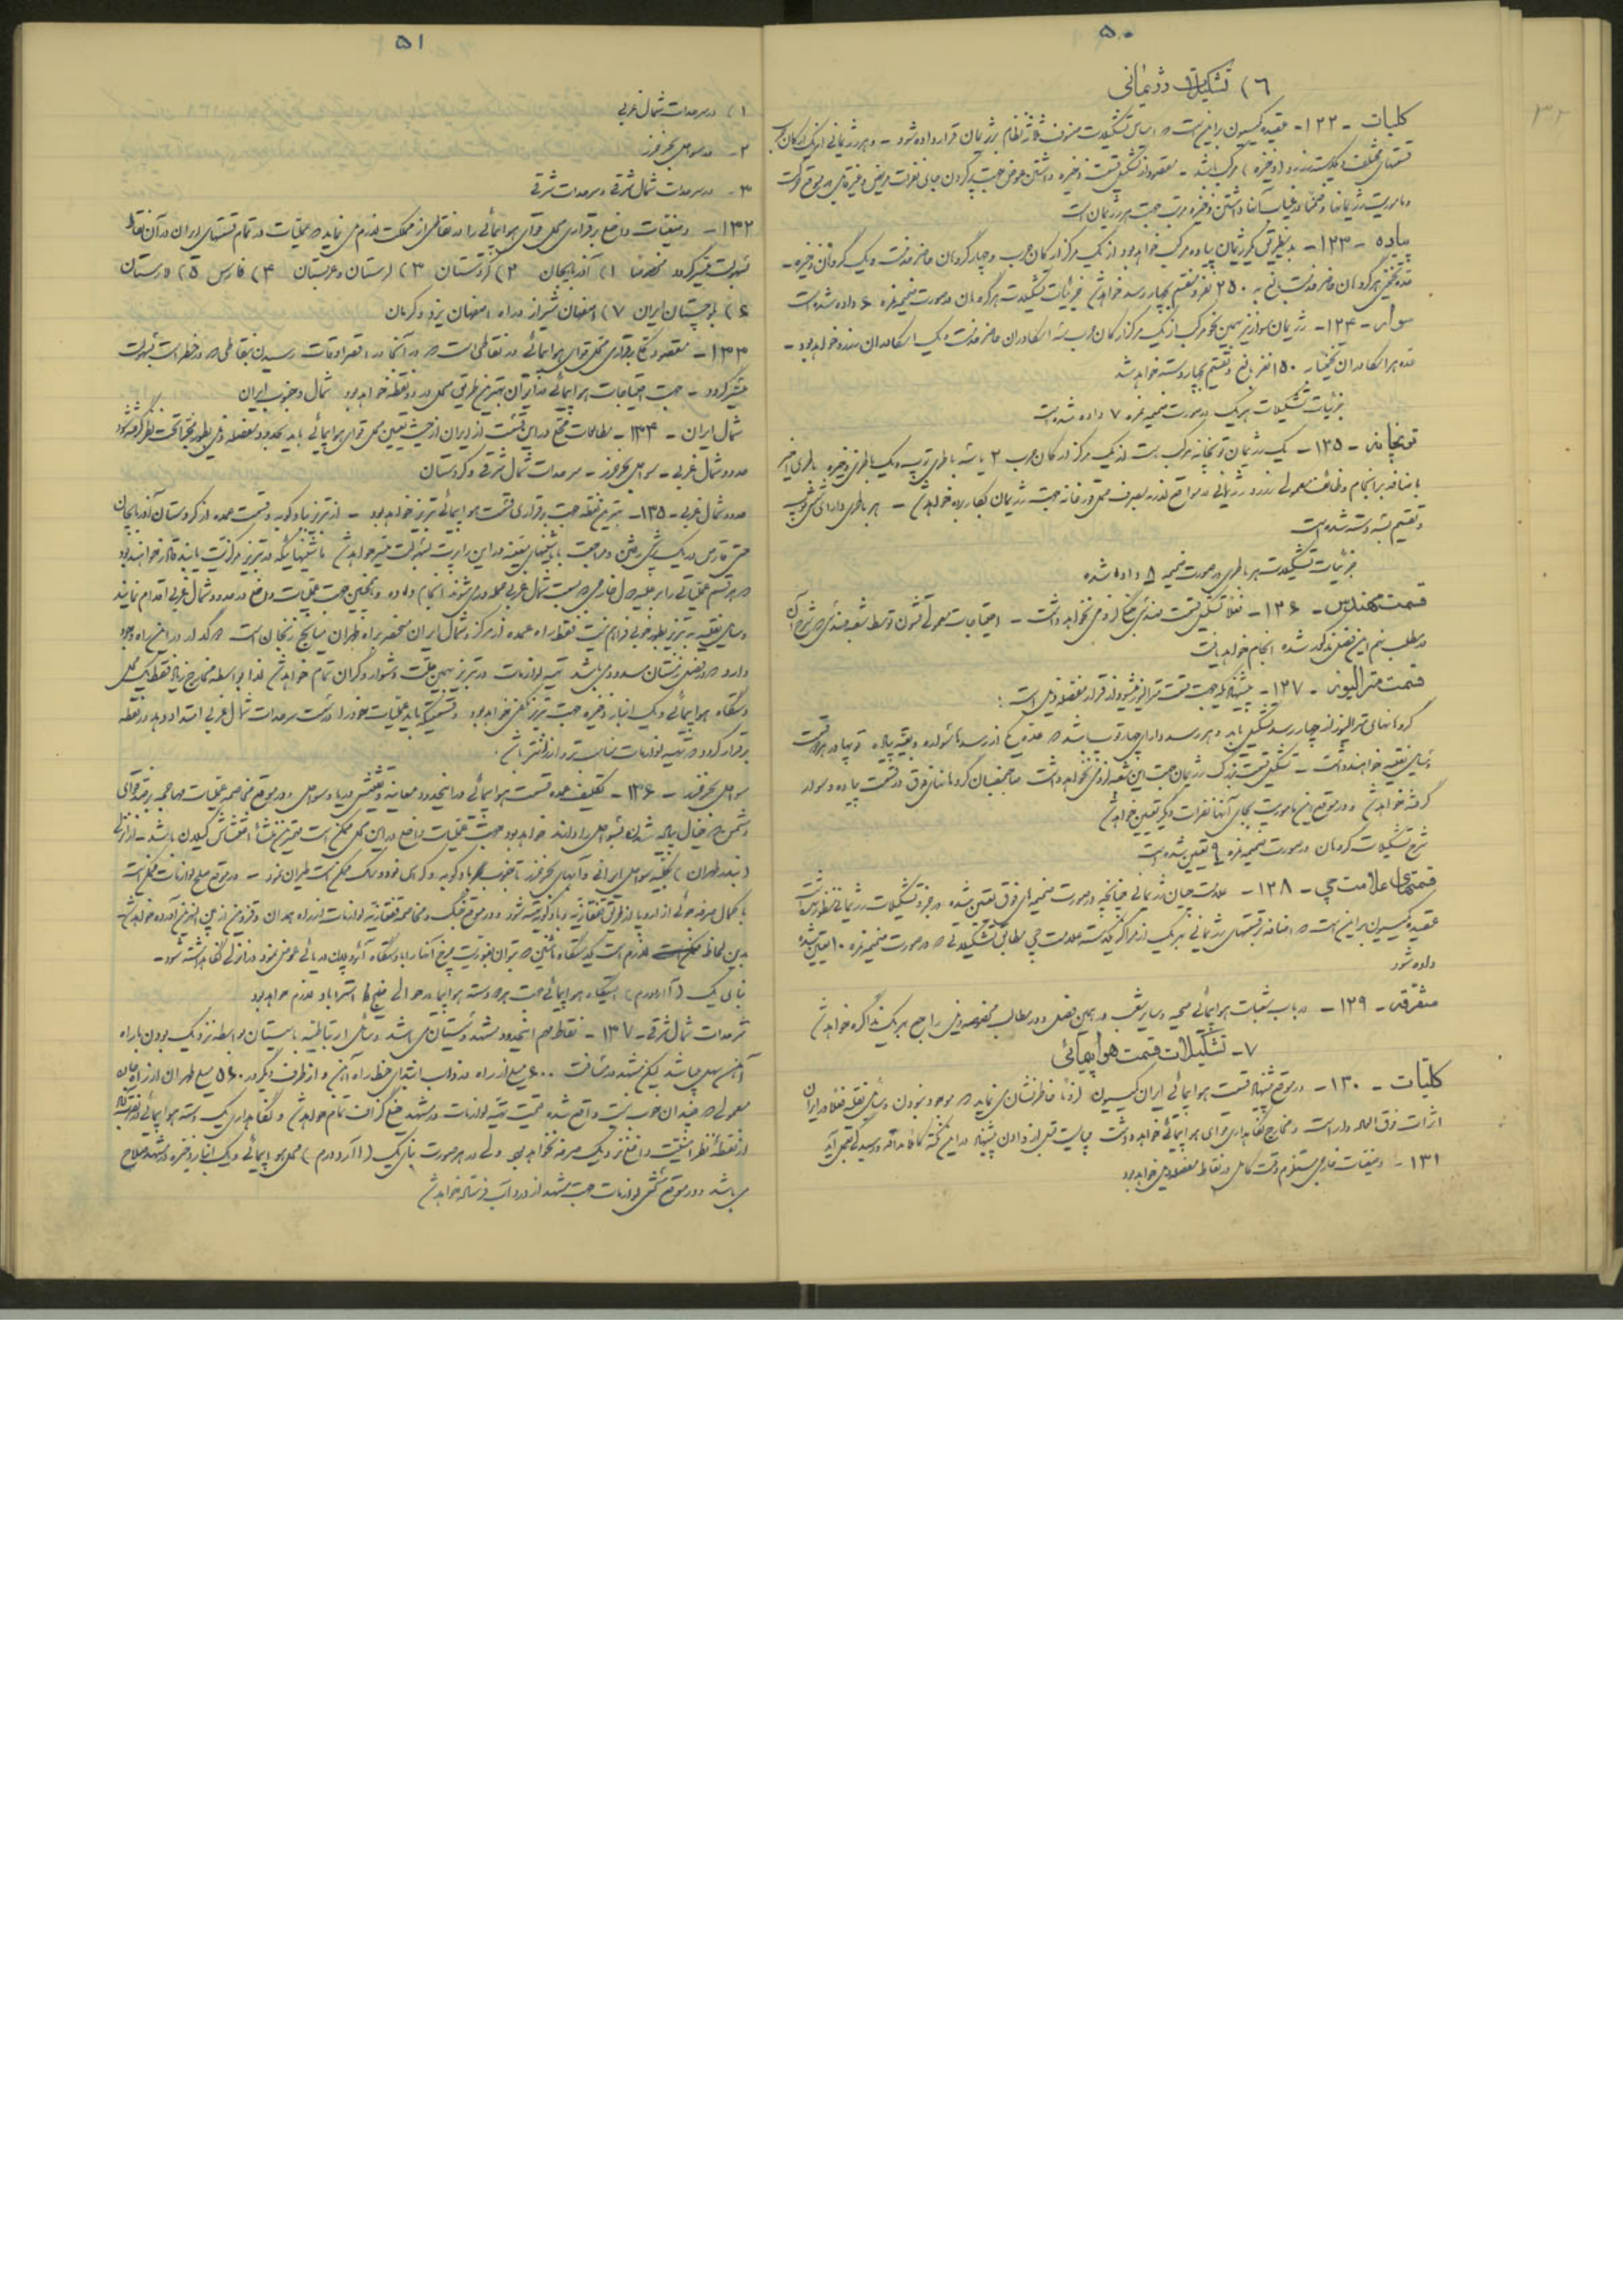 ۵۰
۶) تشکیلات رژیمانی
کلیات - ۱۲۲ - عقیده کمیسیون بر این است که اساس تشکیلات صنوف ثلاثه نظام بر رژیمان قرار داده شود - و هر رژیمانی از یک ارکان حرب
قسمتهای مختلف و یک دسته (ذخیره) مرکب باشد - مقصود از تشکیل قسمت ذخیره داشتن عوض جهت پر کردن جای نفرات مریض و غیره
و ماموریت رژیمانها و ضمناً در غیاب آنها داشتن ذخیره مرتب جهت هر رژیمان است
پیاده - ۱۲۳ - بدینطریق یک رژیمان پیاده مرکب خواهد بود از یک مرکز ارکان حرب و چهار گردان حاضر خدمت و یک گردان ذخیره -
عده تخمینی هر گردان حاضر خدمت بالغ به ۲۵۰ نفر و تقسیم بچهار رسد خواهد شد جزئیات تشکیلات هر گردان در صورت ضمیمه نمره ۶ داده شده است
سوار - ۱۲۴ - رژیمان سوار نیز بهمین نحو مرکب از یک مرکز ارکان حرب سه اسکادران حاضر خدمت و یک اسکادران ذخیره خواهد بود -
عده هر اسکادران تخمیناً به ۱۵۰ نفر بالغ و تقسیم بچهار دسته خواهد شد
جزئیات تشکیلات هر یک در صورت ضمیمه نمره ۷ داده شده است
توپخانه - ۱۲۵ - یک رژیمان توپخانه مرکب است از یک مرکز ارکان حرب ۲ یا سه باطری توپ و یک باطری ذخیره باطری اخیر
باضافه بر انجام وظائف معمولی رژیمانی در مواقع لازمه بمصرف حمل قورخانه جهت رژیمان بکار برده خواهد شد - هر باطری دارای شش توپ
و تقسیم به دسته شده است
جزئیات تشکیلات هر باطری در صورت ضمیمه ۸ داده شده
قسمت مهندس - ۱۲۶ - فعلا تشکیل قسمت مهندسی جنگ لزومی نخواهد داشت - احتیاجات معمولی قشون توسط شعبه مهندسی که شرح آن
در مطلب نهم این فصل مذکور شده انجام خواهد یافت
قسمت متراليوز - ۱۲۷ - پیشنهادیکه جهت قسمت متراليوز میشود از قرار مفصله ذیل است :
گردانهای متراليوز از چهار رسد تشکیل یابد و هر رسد دارای چهار توپ باشد که عده یک از رسدها سواره و بقیه پیاده و بهادر هر دو قسمت
وسایل نقلیه خواهند داشت - تشکیل قسمت بزرگ رژیمان جهت این شعبه لزومی نخواهد داشت صاحبمنصبان گردانهای فوق در قسمت پیاده و سوار
گرفته خواهد شد و در موقع این ماموریت بجای آنها نفرات دیگر تعیین خواهد شد
شرح تشکیلات گردان در صورت ضمیمه نمره ۹ تعیین شده است
قسمتهای علامت چی - ۱۲۸ - علامت چیان رژیمانی چنانچه در صورت ضمیمه های فوق تعیین شده در جزو تشکیلات رژیمانی منظور شده است
عقیده کمیسیون بر این است که اضافه بر قسمتهای رژیمانی بهر یک از مراکز یکدسته علامت چی مطابق تشکیلاتی که در صورت ضمیمه نمره ۱۰ تعیین شده
داده شود
متفرقه - ۱۲۹ - در باب شعبات هواپیمائی صحیه و سایر شعب در همین فصل و در مطالب مخصوصه ذیل راجع بهر یک مذاکره خواهد شد
۷ - تشکیلات قسمت هواپیمائی
کلیات - ۱۳۰ - در موقع پیشنهاد قسمت هواپیمائی ایران کمیسیون لزوماً خاطرنشان می نماید که موجود نبودن وسایل نقلیه فعلا در ایران
اثرات فوق العاده دارد و مخارج نگاهداری قوای هواپیمائی خواهد داشت میبایست قبل از دادن پیشنهاد در این نکته کاملا مداقه و رسیدگی بعمل آید
۱۳۱ - دقیقات خارجی مستلزم دقت کامل در نقاط مفصله ذیل خواهد بود
۵۱
۱) در سرحدات شمال غربی
۲ - در سواحل بحر خزر
۳ - در سرحدات شمال شرقی و سرحدات شرقی
۱۳۲ - دقیقات داخلی برقراری محل قوای هواپیمائی را در نقاطی از مملکت لازم می نماید که عملیات در تمام قسمتهای ایران در آن نقاط
بسهولت میسر گردد مخصوصاً ۱) آذربایجان ۲) کردستان ۳) لرستان و عربستان ۴) فارس ۵) لارستان
۶) بلوچستان ایران ۷) اصفهان شیراز و راه اصفهان یزد و کرمان
۱۳۳ - مقصود کلی برقراری محل قوای هواپیمائی در نقاطی است که در آنجا در اقصر اوقات رسیدن بنقاطی که در خطر است بسهولت
میسر گردد - جهت احتیاجات هواپیمائی در ایران بهترین طریق محل در دو نقطه خواهد بود شمال و جنوب ایران
شمال ایران - ۱۳۴ - مطالعات مختلف در این قسمت از ایران از حیث تعیین محل قوای هواپیمائی باید بحدود مفصله ذیل بطور تحتانی تحت نظر گرفته شود
حدود شمال غربی - سواحل بحر خزر - سرحدات شمال شرقی و کردستان
حدود شمال غربی - ۱۳۵ - بهترین نقطه جهت برقراری قسمت هواپیمائی تبریز خواهد بود - از تبریز بادکوبه و قسمت عمده از کردستان آذربایجان
حتی قارص در یک رفتن و مراجعت با ماشینهای بسهولت میسر خواهد شد ماشینهائیکه در تبریز مرکزیت یابند قادر خواهند بود
که هر قسم عملیاتی را بر علیه دول خارجی که بسمت شمال غربی حمله ور می شوند انجام داده و همچنین جهت عملیات داخلی در حدود شمال غربی اقدام نمایند
وسایل نقلیه به تبریز بطور خوبی فراهم نیست فقط راه عمده از مرکز و شمال ایران منحصر براه طهران میانج زنجان است که گدار در این راه وجود
دارد که در فصل زمستان مسدود می باشد تهیه لوازمات در تبریز بهمین علت دشوار و گران تمام خواهد شد لهذا بواسطه مخارج زیاد فقط یک محل
دستگاه هواپیمائی و یک انبار ذخیره جهت تبریز کافی خواهد بود و قسمتیکه باید عملیات خود را در سرحدات شمال غربی امتداد دهد در نقطه
برقرار گردد که تهیه لوازمات مناسب تر و ارزانتر باشد .
سواحل بحر خزر - ۱۳۶ - تکلیف عمده قسمت هواپیمائی در این حدود معاینه و تفتیش دریا و سواحل و در موقع مخاصمه عملیات مهاجمه بر ضد قوای
دشمن که خیال پیاده شدن بسواحل را دارند خواهد بود جهت عملیات داخلی در این محل ممکن است بهترین منشاء اغتشاش گیلان باشد - از انزلی
(بندر طهران) بکلیه سواحل ایرانی و آبهای بحر خزر تا جنوب بادکوبه و کراسنوودسک ممکن است طیران نمود - در موقع صلح لوازمات ممکن است
با کمال صرفه جوئی از اروپا از طریق قفقازیه و بادکوبه تهیه شود و در موقع جنگ و مخاصمه قفقازیه لوازمات از راه همدان و قزوین از بین النهرین آورده خواهد شد
بدین لحاظ لازم است یکدستگاه ماشین که بتوان بفوریت چرخ آنها را با دستگاه آئروپلان دریائی عوض نمود در انزلی نگاهداشته شود -
بنای یک (آاردرم) ایستگاه هواپیمائی جهت هر دسته هواپیما در حوالی خلیج استراباد لازم خواهد بود
سرحدات شمال شرقی - ۱۳۷ - نقاط مهم این حدود مشهد و سیستان می باشد وسایل ارتباطیه با سیستان بواسطه نزدیک بودن با راه
آهن سهل میباشد لیکن مشهد در مسافت ۶۰۰ میل از راه دزداب ابتدای خط راه آهن و از طرف دیگر در ۵۶۰ میل طهران از راه
معمولی که چندان خوب نیست واقع شده قیمت تهیه لوازمات در مشهد خیلی گزاف تمام خواهد شد و نگاهداری یک دسته هواپیمائی در نقطه مذکور
از نقطه نظر امنیت داخلی نزدیک صرفه نخواهد بود ولی در هر صورت بنای یک (آاردرم) محل هواپیمائی و یک انبار ذخیره در مشهد صلاح
می باشد و در موقع کشمکش لوازمات جهت مشهد از دزداب فرستاده خواهد شد